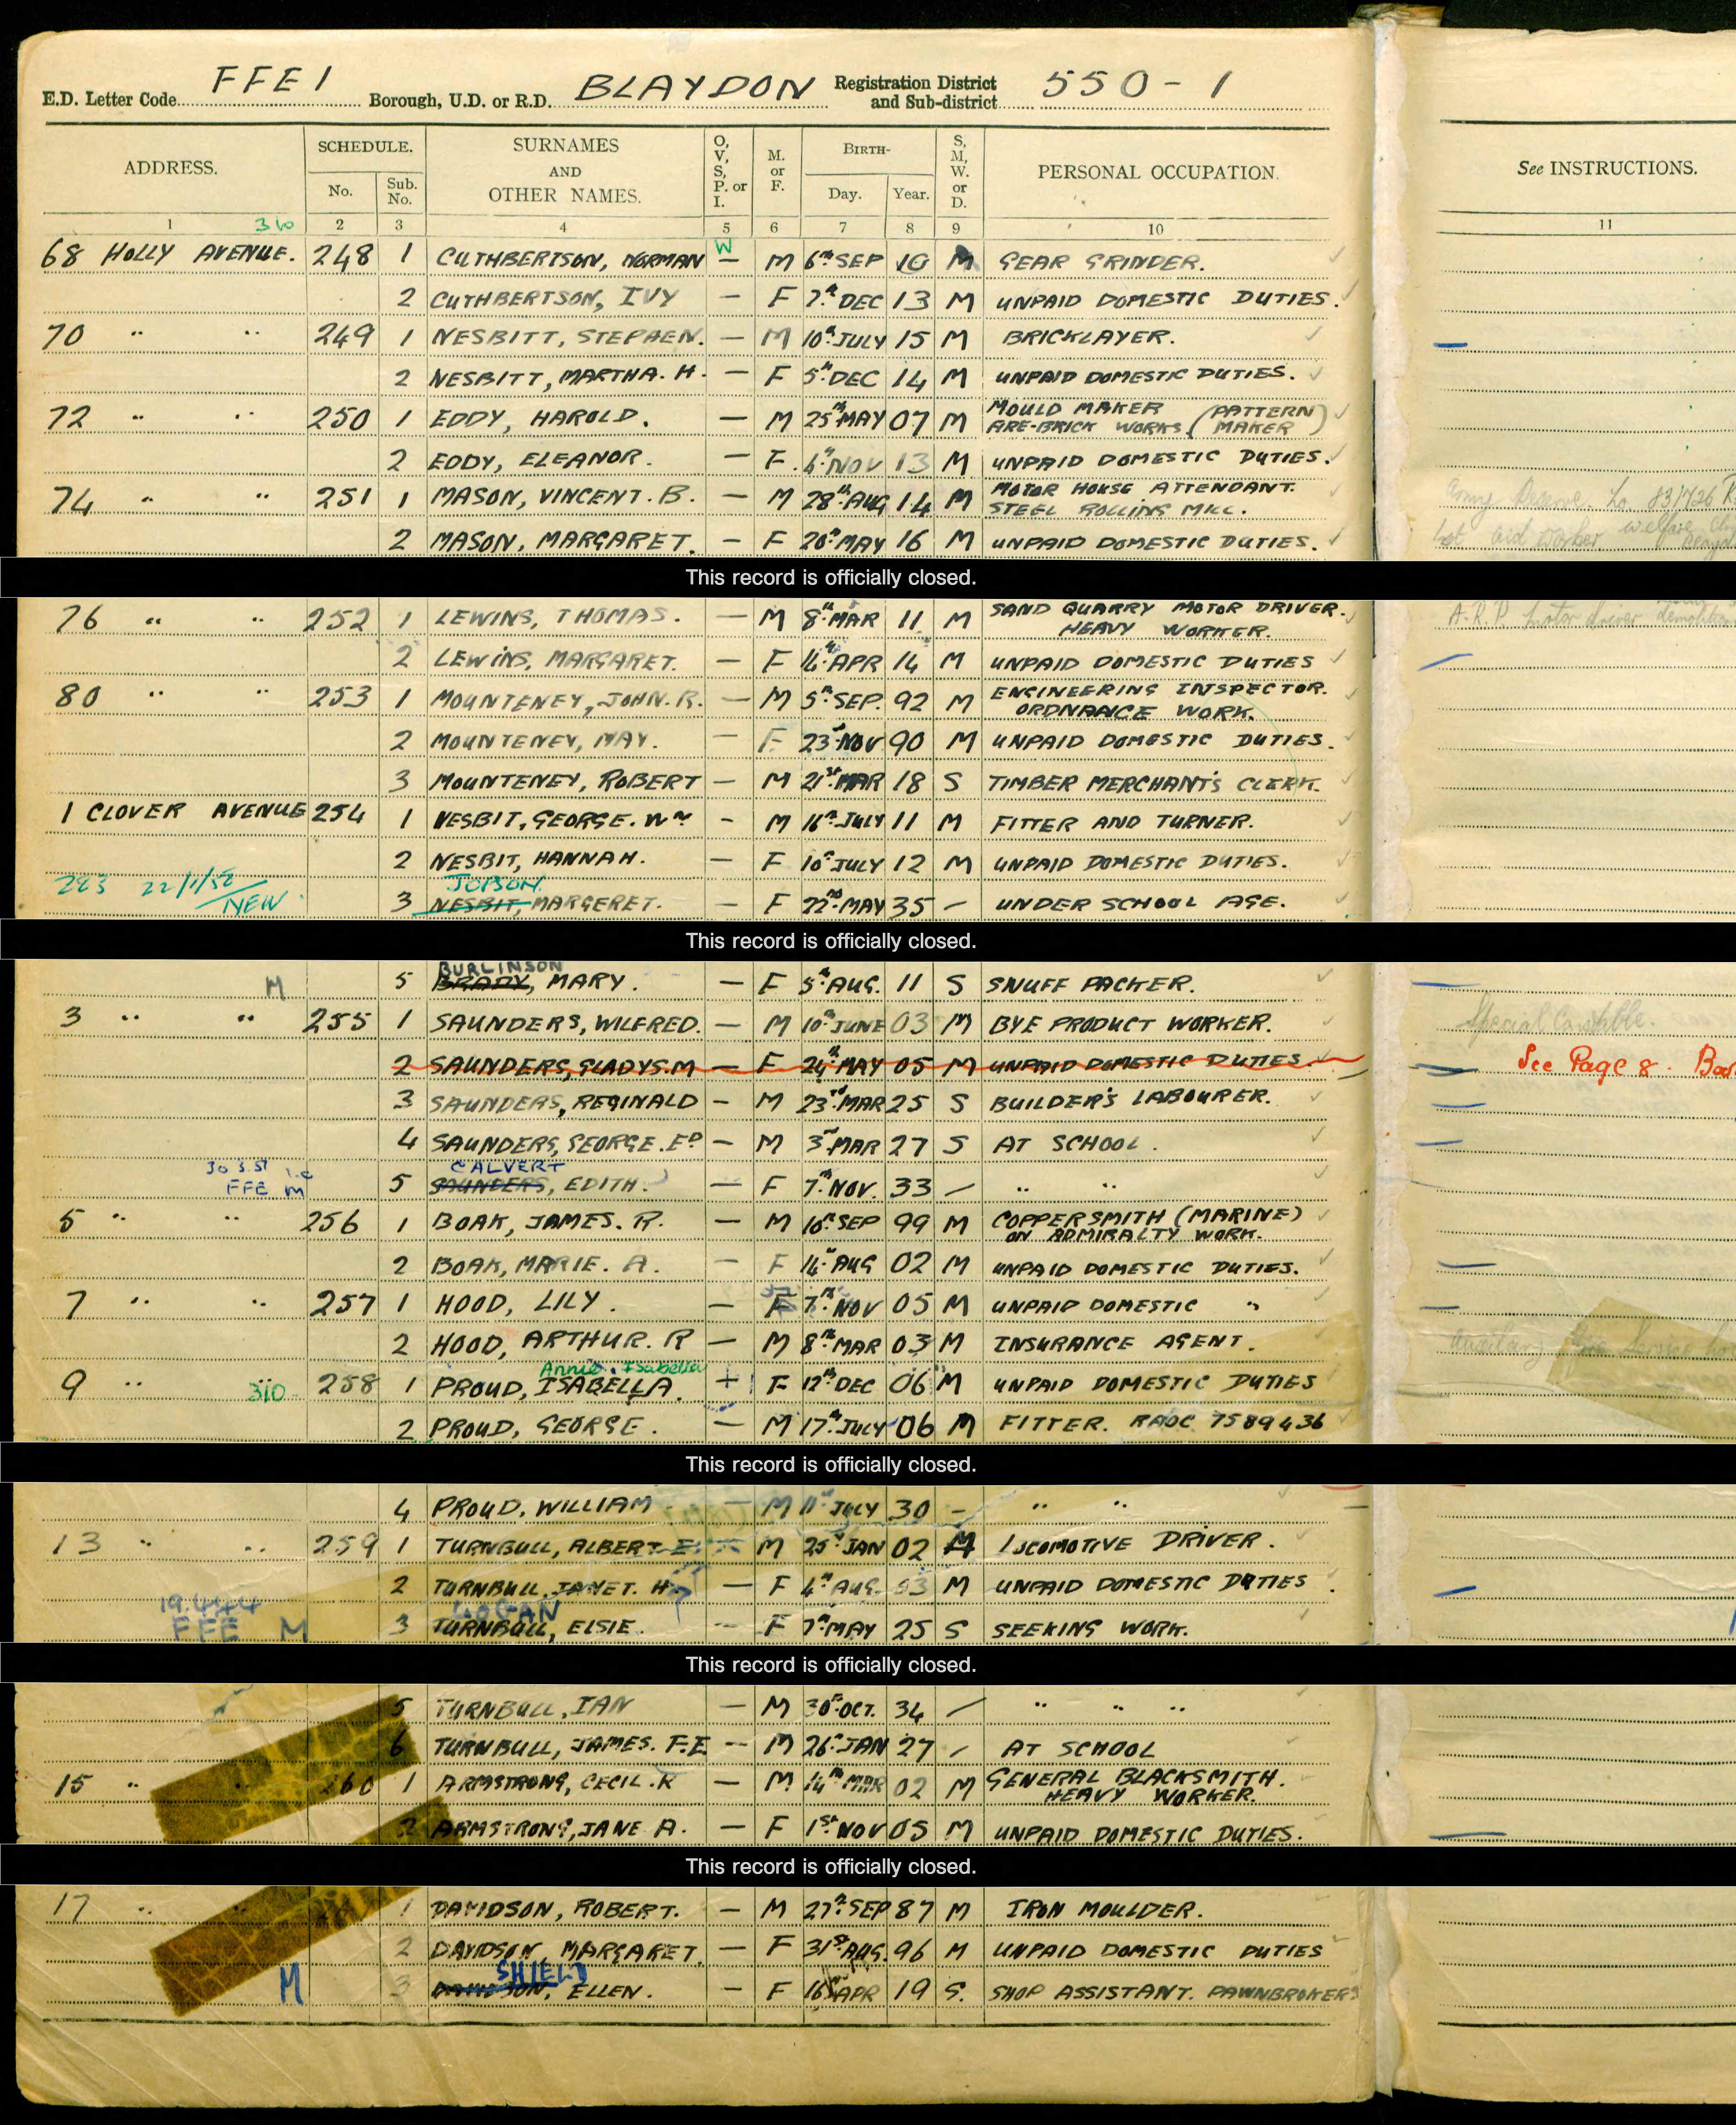 E.D. Letter Code FFE1 Borough, U.D. or R.D. BLAYDON Registration District and Sub-district 550-1
ADDRESS. SCHEDULE. No. Sub. No. SURNAMES AND OTHER NAMES. O, V, S, P. or I. M. or F. BIRTH- Day. Year. S, M, W. or D. PERSONAL OCCUPATION. See INSTRUCTIONS.
1 310 2 3 4 5 6 7 8 9 10 11
W
68 HOLLY AVENUE. 248 1 CUTHBERTSON, NORMAN — M 6th SEP 10 M GEAR GRINDER.
2 CUTHBERTSON, IVY — F 7th DEC 13 M UNPAID DOMESTIC DUTIES.
70 " " 249 1 NESBITT, STEPHEN. — M 10th JULY 15 M BRICKLAYER.
2 NESBITT, MARTHA. H. — F 5th DEC 14 M UNPAID DOMESTIC DUTIES.
72 " " 250 1 EDDY, HAROLD. — M 25th MAY 07 M MOULD MAKER (PATTERN MAKER) FIRE-BRICK WORKS
2 EDDY, ELEANOR. — F 4th NOV 13 M UNPAID DOMESTIC DUTIES.
74 " " 251 1 MASON, VINCENT. B. — M 28th AUG 14 M MOTOR HOUSE ATTENDANT. STEEL ROLLING MILL. Army Reserve.
2 MASON, MARGARET. — F 20th MAY 16 M UNPAID DOMESTIC DUTIES. 1st aid worker welfare
This record is officially closed.
76 " " 252 1 LEWINS, THOMAS. — M 8th MAR 11 M SAND QUARRY MOTOR DRIVER. HEAVY WORKER. A.R.P. motor driver demolition
2 LEWINS, MARGARET. — F 14th APR 14 M UNPAID DOMESTIC DUTIES
80 " " 253 1 MOUNTENEY, JOHN. R. — M 5th SEP. 92 M ENGINEERING INSPECTOR. ORDNANCE WORK.
2 MOUNTENEY, MAY. — F 23rd NOV 90 M UNPAID DOMESTIC DUTIES.
3 MOUNTENEY, ROBERT — M 21st MAR 18 S TIMBER MERCHANT'S CLERK.
1 CLOVER AVENUE 254 1 NESBIT, GEORGE. Wm - M 16th JULY 11 M FITTER AND TURNER.
2 NESBIT, HANNAH. — F 10th JULY 12 M UNPAID DOMESTIC DUTIES.
223 22/1/52 NEW JOBSON
3 NESBIT, MARGERET. — F 22nd MAY 35 - UNDER SCHOOL AGE.
This record is officially closed.
BURLINSON
M 5 BRADY, MARY. — F 5th AUG. 11 S SNUFF PACKER.
3 " " 255 1 SAUNDERS, WILFRED. — M 10th JUNE 03 M BYE PRODUCT WORKER. Special Constable.
2 SAUNDERS, GLADYS. M — F 24th MAY 05 M UNPAID DOMESTIC DUTIES. See Page 8.
3 SAUNDERS, REGINALD — M 23rd MAR 25 S BUILDER'S LABOURER.
4 SAUNDERS, GEORGE. ED — M 3rd MAR 27 S AT SCHOOL.
FFE M CALVERT
5 SAUNDERS, EDITH. — F 7th NOV. 33 - " "
5 " " 256 1 BOAK, JAMES. R. — M 10th SEP 99 M COPPERSMITH (MARINE) ON ADMIRALTY WORK.
2 BOAK, MARIE. A. — F 14th AUG 02 M UNPAID DOMESTIC DUTIES.
7 " " 257 1 HOOD, LILY. — F 7th NOV 05 M UNPAID DOMESTIC "
2 HOOD, ARTHUR. R — M 8th MAR 03 M INSURANCE AGENT. Auxiliary Fire Service
Annie Isabella
9 " " 310 258 1 PROUD, ISABELLA. + F 12th DEC 06 M UNPAID DOMESTIC DUTIES
2 PROUD, GEORGE. — M 17th JULY 06 M FITTER. RAOC 7589436
This record is officially closed.
4 PROUD, WILLIAM — M 11th JULY 30 - " "
13 " " 259 1 TURNBULL, ALBERT E. — M 25th JAN 02 M LOCOMOTIVE DRIVER.
2 TURNBULL, JANET. H. — F 4th AUG. 03 M UNPAID DOMESTIC DUTIES.
19.4.44 FFE M LOGAN
3 TURNBULL, ELSIE. — F 7th MAY 25 S SEEKING WORK.
This record is officially closed.
5 TURNBULL, IAN — M 30th OCT. 34 - " " "
6 TURNBULL, JAMES. F.E. — M 26th JAN 27 - AT SCHOOL
15 " " 260 1 ARMSTRONG, CECIL. K — M 14th MAR 02 M GENERAL BLACKSMITH. HEAVY WORKER.
2 ARMSTRONG, JANE A. — F 1st NOV 05 M UNPAID DOMESTIC DUTIES.
This record is officially closed.
17 " " 1 DAVIDSON, ROBERT. — M 27th SEP 87 M IRON MOULDER.
2 DAVIDSON, MARGARET. — F 31st AUG. 96 M UNPAID DOMESTIC DUTIES
SHIELD
M 3 DAVIDSON, ELLEN. — F 16th APR 19 S. SHOP ASSISTANT. PAWNBROKERS